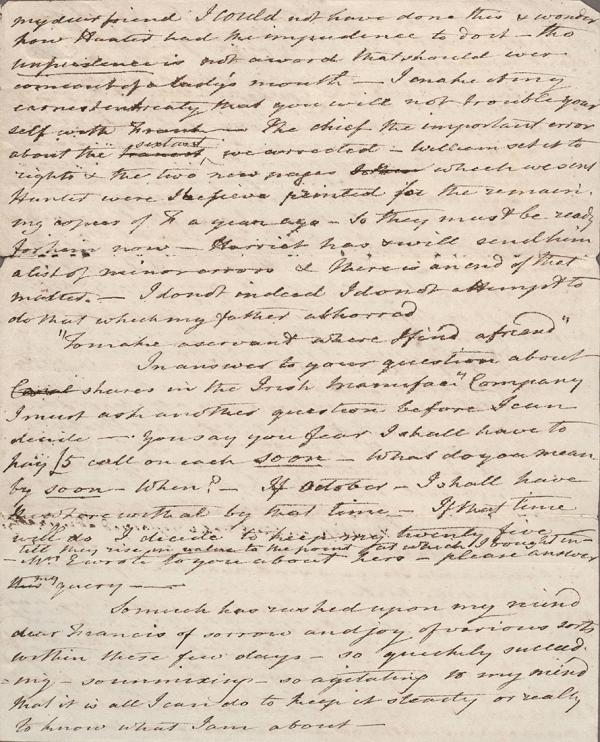 my dear friend I could not have done this & wonder
how Hunter had the impudence to do it – tho
impudence is not a word that should ever
come out of a lady's mouth – I make it my
earnest entreaty that you will not trouble your
self with Frank – The chief the important error
about the "sixteen" we corrected – William set it to
rights & the two new pages which we sent
Hunter were I believe printed for the remain-
ing copies of F a year ago – So they must be ready
for him now – Harriet has & will send him
a list of minor errors & there is an end of that
matter. – I do not indeed I do not attempt to
do that which my father abhorred
"To make a servant where I find a friend"
In answer to your question about
Canal shares in the Irish Manufact" Company
I must ask another question before I can
decide – You say you fear I shall have to
pay £5 call on each soon – What do you mean
by soon – When? – If October – I shall have
wherewithal by that time – If that time
will do I decide to keep my twenty five
till they rise in value to the point at which I bought in –
– Mrs E wrote to you about hers – please answer
this my query –
So much has rushed upon my mind
dear Francis of sorrow and joy of various sorts
within these few days – so quickly succeed-
ing – so unmixing – so agitating to my mind
that it is all I can do to keep it steady or really
to know what I am about –